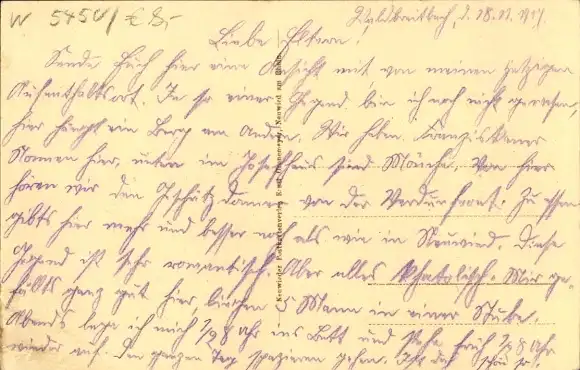 W 5450/ € 8,-
Waldbreitbach, d. 18.11.1917.
Liebe Eltern!
Sende Euch hier eine Ansicht mit von meinem jetzigen
Aufenthaltsort. In so einer Gegend bin ich noch nicht gewesen,
hier hängt ein Berg am Andern. Wir haben Franziskaner
Nonnen hier, unten im Josefhaus sind Mönche. Von hier
hören wir den Geschützdonner von der Verdunfront. Zu essen
gibts hier mehr und besser noch als wie in Neuwied. Diese
Gegend ist sehr romantisch. Aber alles Khatolisch. Mir ge-
fällts ganz gut hier, liegen 5 Mann in einer Stube.
Abends lege ich mich 1/2 8 Uhr ins Bett und stehe früh 1/2 8 Uhr
wieder auf. Den ganzen Tag spazieren gehen.
Neuwieder Postkartenverlag Neuwied am Rhein